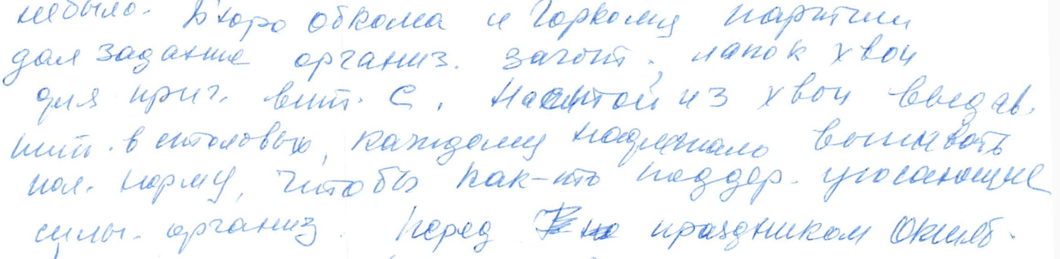 небыло. Бюро обкома и Горкому партии
дал задание организ. загот. лапок хвои
для приг. вит. С. Настой из хвои выдав.
пит. в столовых, каждому надлежало выпивать
пол. норму, чтобы как-то поддер. угасающие
силы. организ. Перед праздником Октяб.